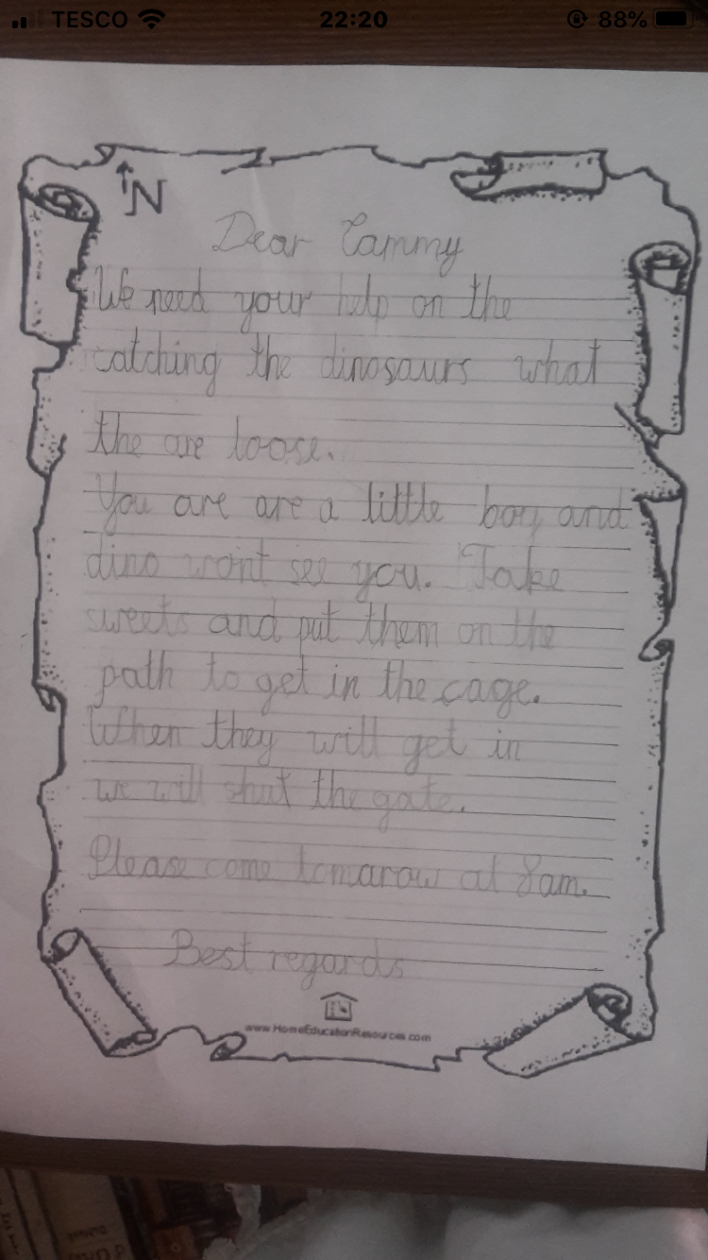 TESCO 22:20 88%
N
Dear
We need your help on the
catching the dinosaurs what
the are loose.
You are are a little boy and
dino wont see you. Take
sweets and put them on the
path to get in the cage.
When they will get in
we will shut the gate.
Please come tomarow at 8am.
Best regards
www.HomeEducationResources.com